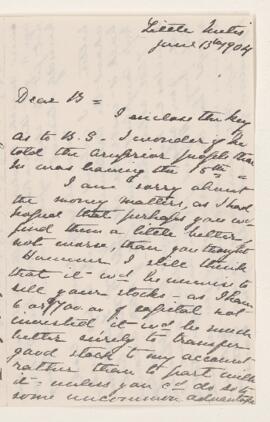 Little Metis
June 13th 1904
Dear B =
I enclose the key
as to B.S - I wonder if he
told the people that
he was leaving the 15th =
I am sorry about
the money matters, as I had
hoped that perhaps you wd
find them a little better
not worse, than you thought
However I still think
that it wd be unwise to
sell your stocks - as I have
6 or $700. of capital not
invested, it wd be much
better surely to transfer
good stock to my account
rather than to part with
it - unless you cd do so to
some uncommon advantage